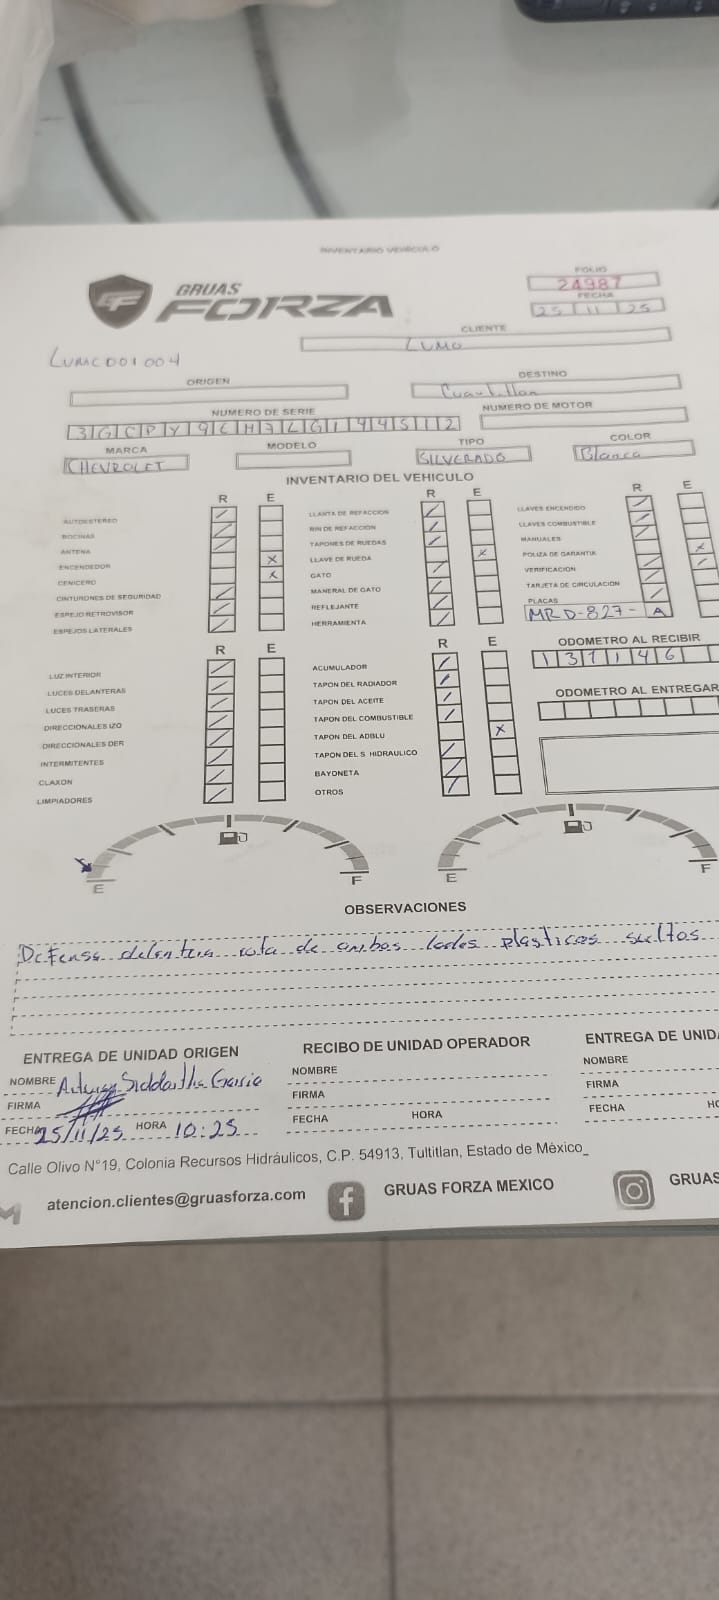 INVENTARIO VEHICULO
GRUAS
FORZA
FOLIO
24987
FECHA
25 11 25
CLIENTE
LUMO
LUMCD01004
ORIGEN
DESTINO
Cuautitlan
NUMERO DE SERIE
NUMERO DE MOTOR
MARCA
MODELO
TIPO
COLOR
CHEVROLET
SILVERADO
Blanca
INVENTARIO DEL VEHICULO
R E R E R E
AUTOESTEREO
BOCINAS
ANTENA
ENCENDEDOR
CENICERO
CINTURONES DE SEGURIDAD
ESPEJO RETROVISOR
ESPEJOS LATERALES
LLANTA DE REFACCION
RIN DE REFACCION
TAPONES DE RUEDAS
LLAVE DE RUEDA
GATO
MANERAL DE GATO
REFLEJANTE
HERRAMIENTA
LLAVES ENCENDIDO
LLAVES COMBUSTIBLE
MANUALES
POLIZA DE GARANTIA
VERIFICACION
TARJETA DE CIRCULACION
PLACAS
MRD-827-A
R E R E
LUZ INTERIOR
LUCES DELANTERAS
LUCES TRASERAS
DIRECCIONALES IZQ
DIRECCIONALES DER
INTERMITENTES
CLAXON
LIMPIADORES
ACUMULADOR
TAPON DEL RADIADOR
TAPON DEL ACEITE
TAPON DEL COMBUSTIBLE
TAPON DEL ADBLU
TAPON DEL S. HIDRAULICO
BAYONETA
OTROS
ODOMETRO AL RECIBIR
137146
ODOMETRO AL ENTREGAR
E F E F
OBSERVACIONES
Defensa delantera rota de ambos lados plasticos sueltos
ENTREGA DE UNIDAD ORIGEN
NOMBRE Siddartha Garcia
FIRMA
FECHA 25/11/25 HORA 10:25
RECIBO DE UNIDAD OPERADOR
NOMBRE
FIRMA
FECHA HORA
ENTREGA DE UNID
NOMBRE
FIRMA
FECHA HO
Calle Olivo N°19, Colonia Recursos Hidráulicos, C.P. 54913, Tultitlan, Estado de México_
atencion.clientes@gruasforza.com
GRUAS FORZA MEXICO
GRUAS